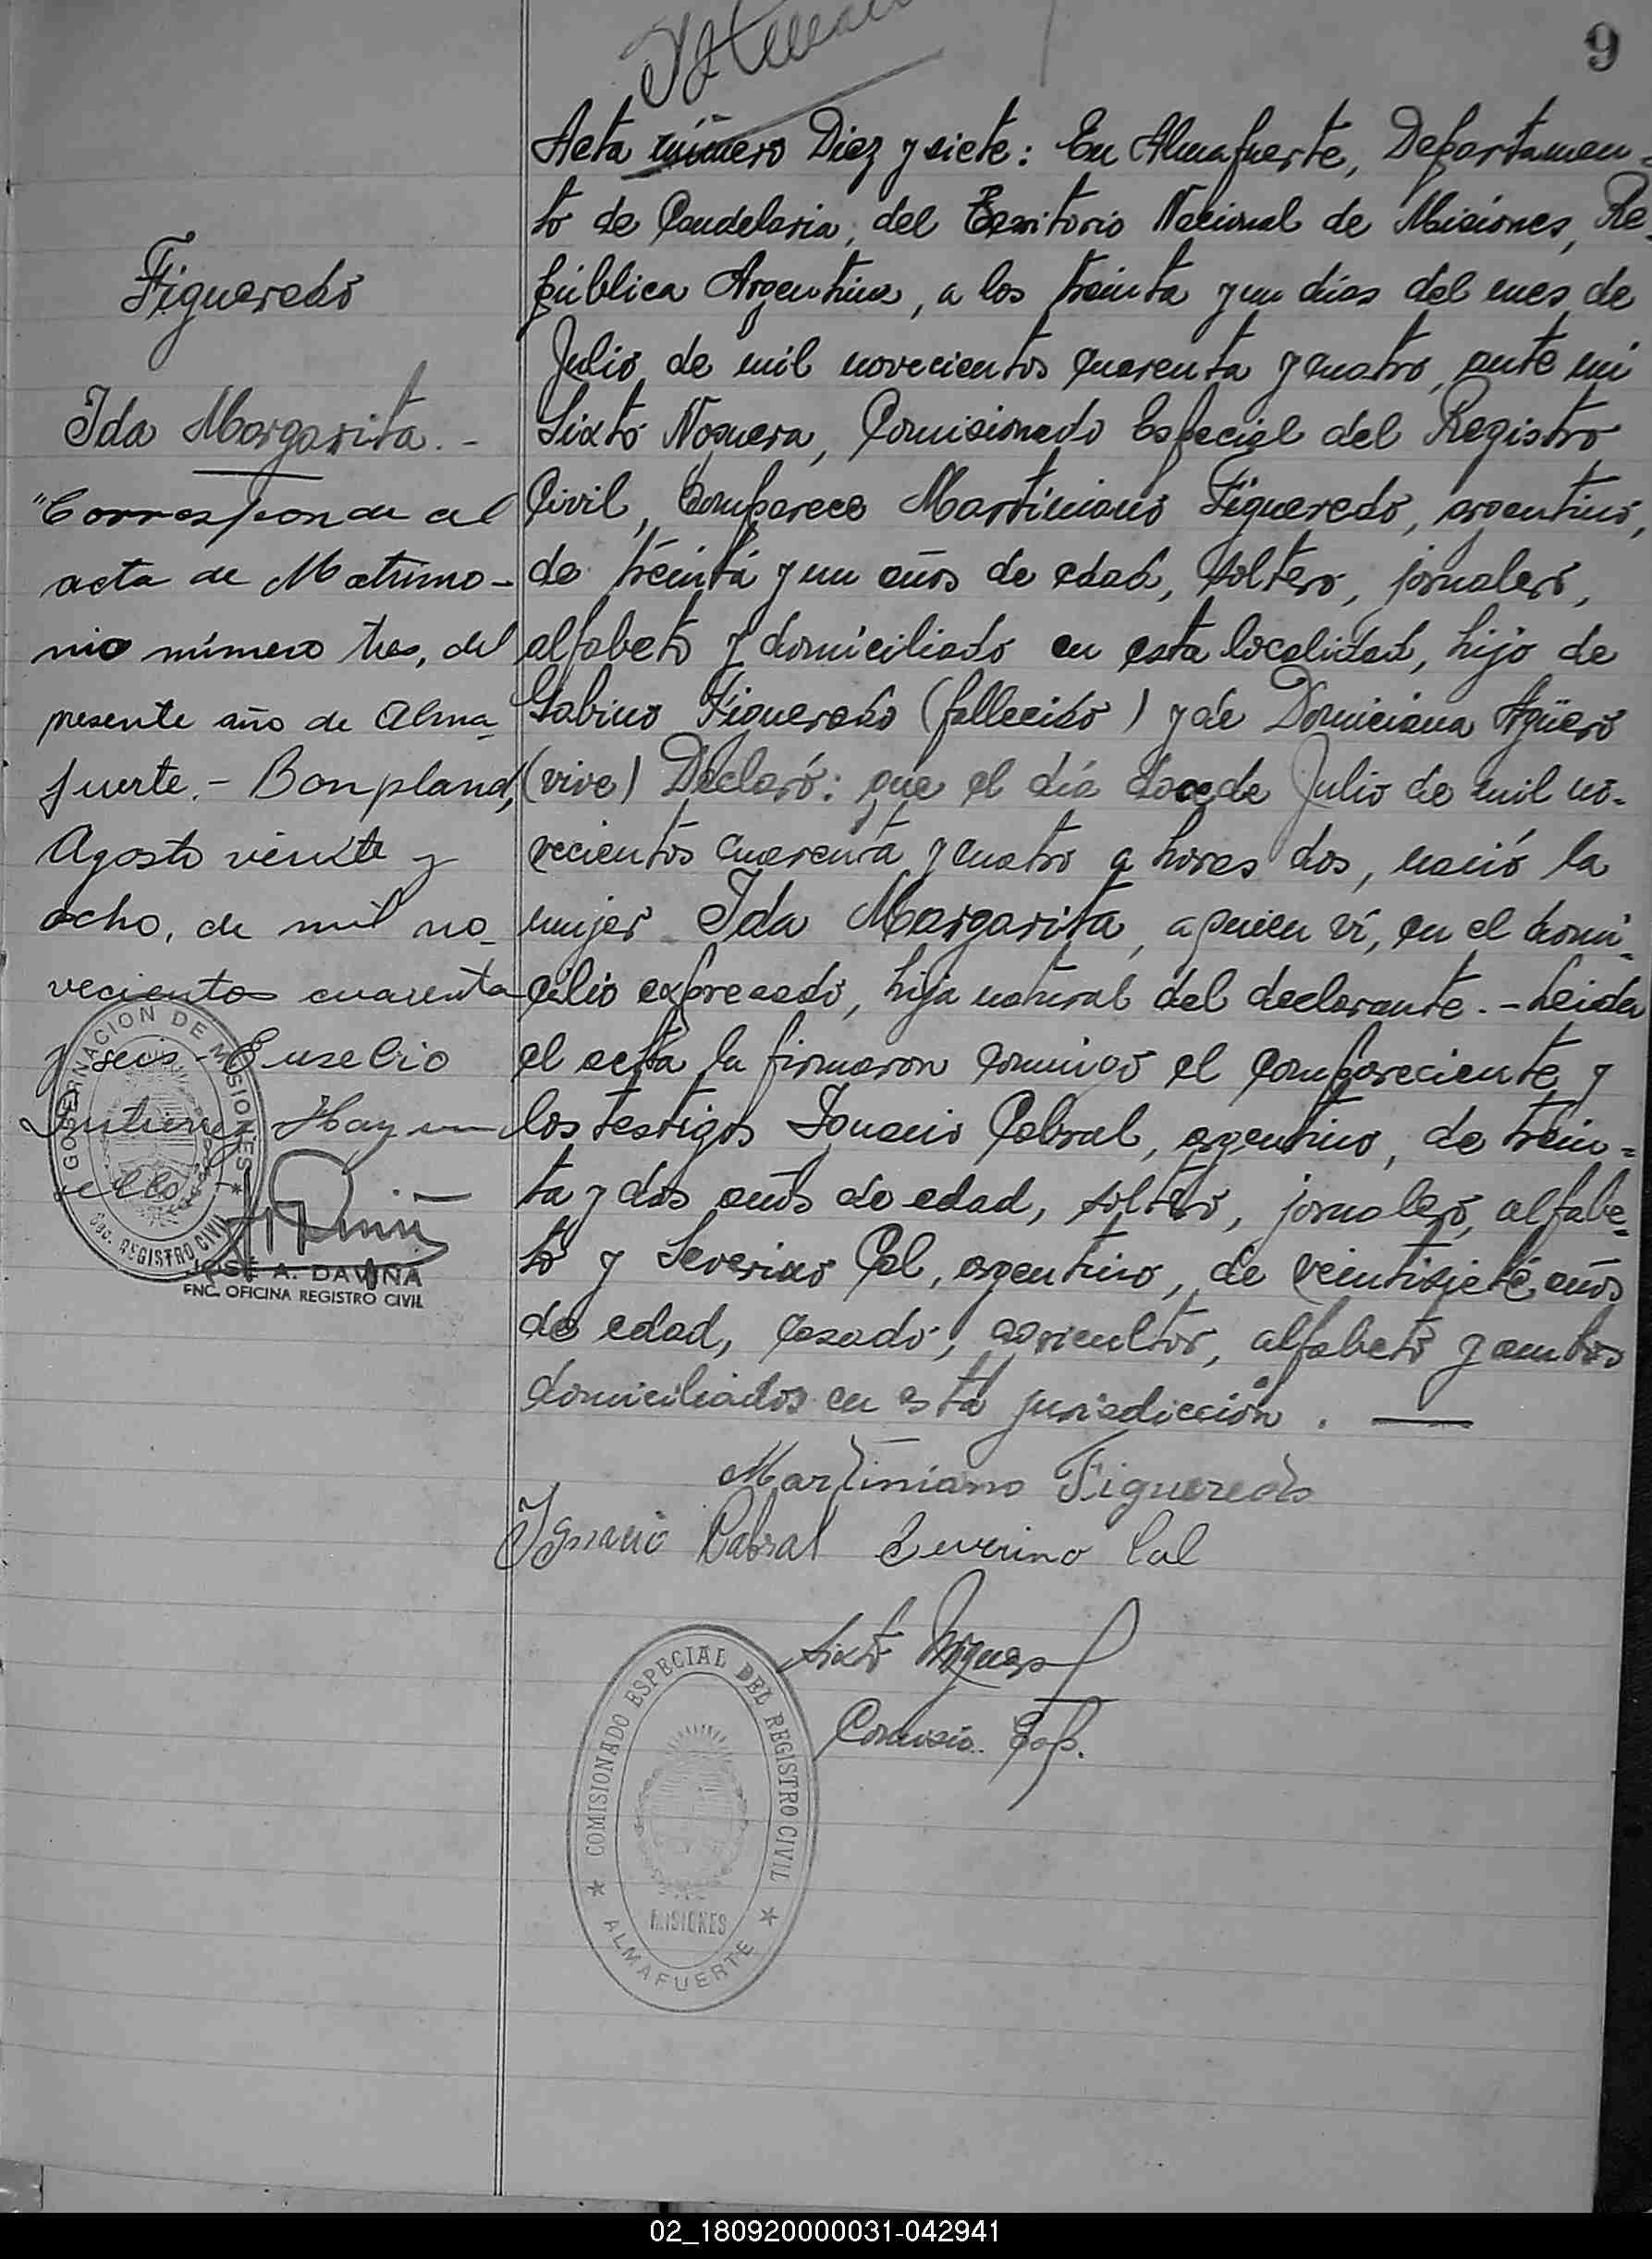 9
Acta número Diez y siete: En Almafuerte, Departamen-
to de Candelaria, del Territorio Nacional de Misiones, Re-
pública Argentina, a los treinta y un dias del mes de
Julio de mil novecientos cuarenta y cuatro, ante mi
Sixto Noguera, Comisionado Especial del Registro
Civil, Comparece Martiniano Figueredo, argentino,
de treinta y un años de edad, soltero, jornalero,
alfabeto y domiciliado en esta localidad, hijo de
Gabino Figueredo (fallecido) y de Domiciana Agüero
(vive) Declaró: que el día doce de Julio de mil no-
vecientos cuarenta y cuatro a horas dos, nació la
mujer Ida Margarita, a quien ví, en el domi-
cilio expresado, hija natural del declarante. - Leida
el acta la firmaron conmigo el compareciente y
los testigos Ignacio Cabral, argentino, de trein-
ta y dos años de edad, soltero, jornalero, alfabe-
to y Severino Cal, argentino, de veintisiete años
de edad, casado, agricultor, alfabeto y ambos
domiciliados en esta jurisdicción. —
Martiniano Figueredo
Ignacio Cabral Severino Cal
Sixto Noguera
Comisio. Esp.
COMISIONADO ESPECIAL DEL REGISTRO CIVIL
MISIONES
ALMAFUERTE
Figueredo
Ida Margarita. -
"Corresponde al
acta de Matrimo-
nio número tres, del
presente año de Alma-
fuerte. - Bonpland,
Agosto veinte y
ocho, de mil no-
vecientos cuarenta
y seis - Eusebio
Hay un
sello -
GOBERNACION DE MISIONES
Sec. REGISTRO CIVIL
JOSÉ A. DAVIÑA
ENC. OFICINA REGISTRO CIVIL
02_180920000031-042941